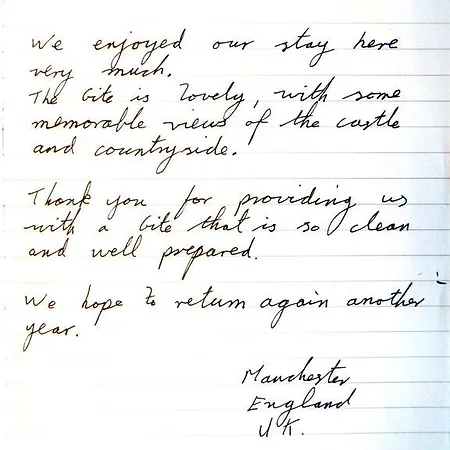 We enjoyed our stay here
very much.
The Gite is lovely, with some
memorable views of the castle
and countryside.
Thank you for providing us
with a Gite that is so clean
and well prepared.
We hope to return again another
year.
Manchester
England
U.K.